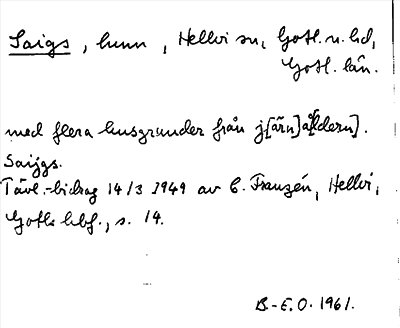 Saigs, hmn, Hellvi sn, Gotl. n. hd,
Gotl. län.
med flera husgrunder från j[ärn]å[ldern].
Saijgs.
Tävl.-bidrag 14/3 1949 av C. Franzén, Hellvi,
Gotl. hbf., s. 14.
B-E.O. 1961.